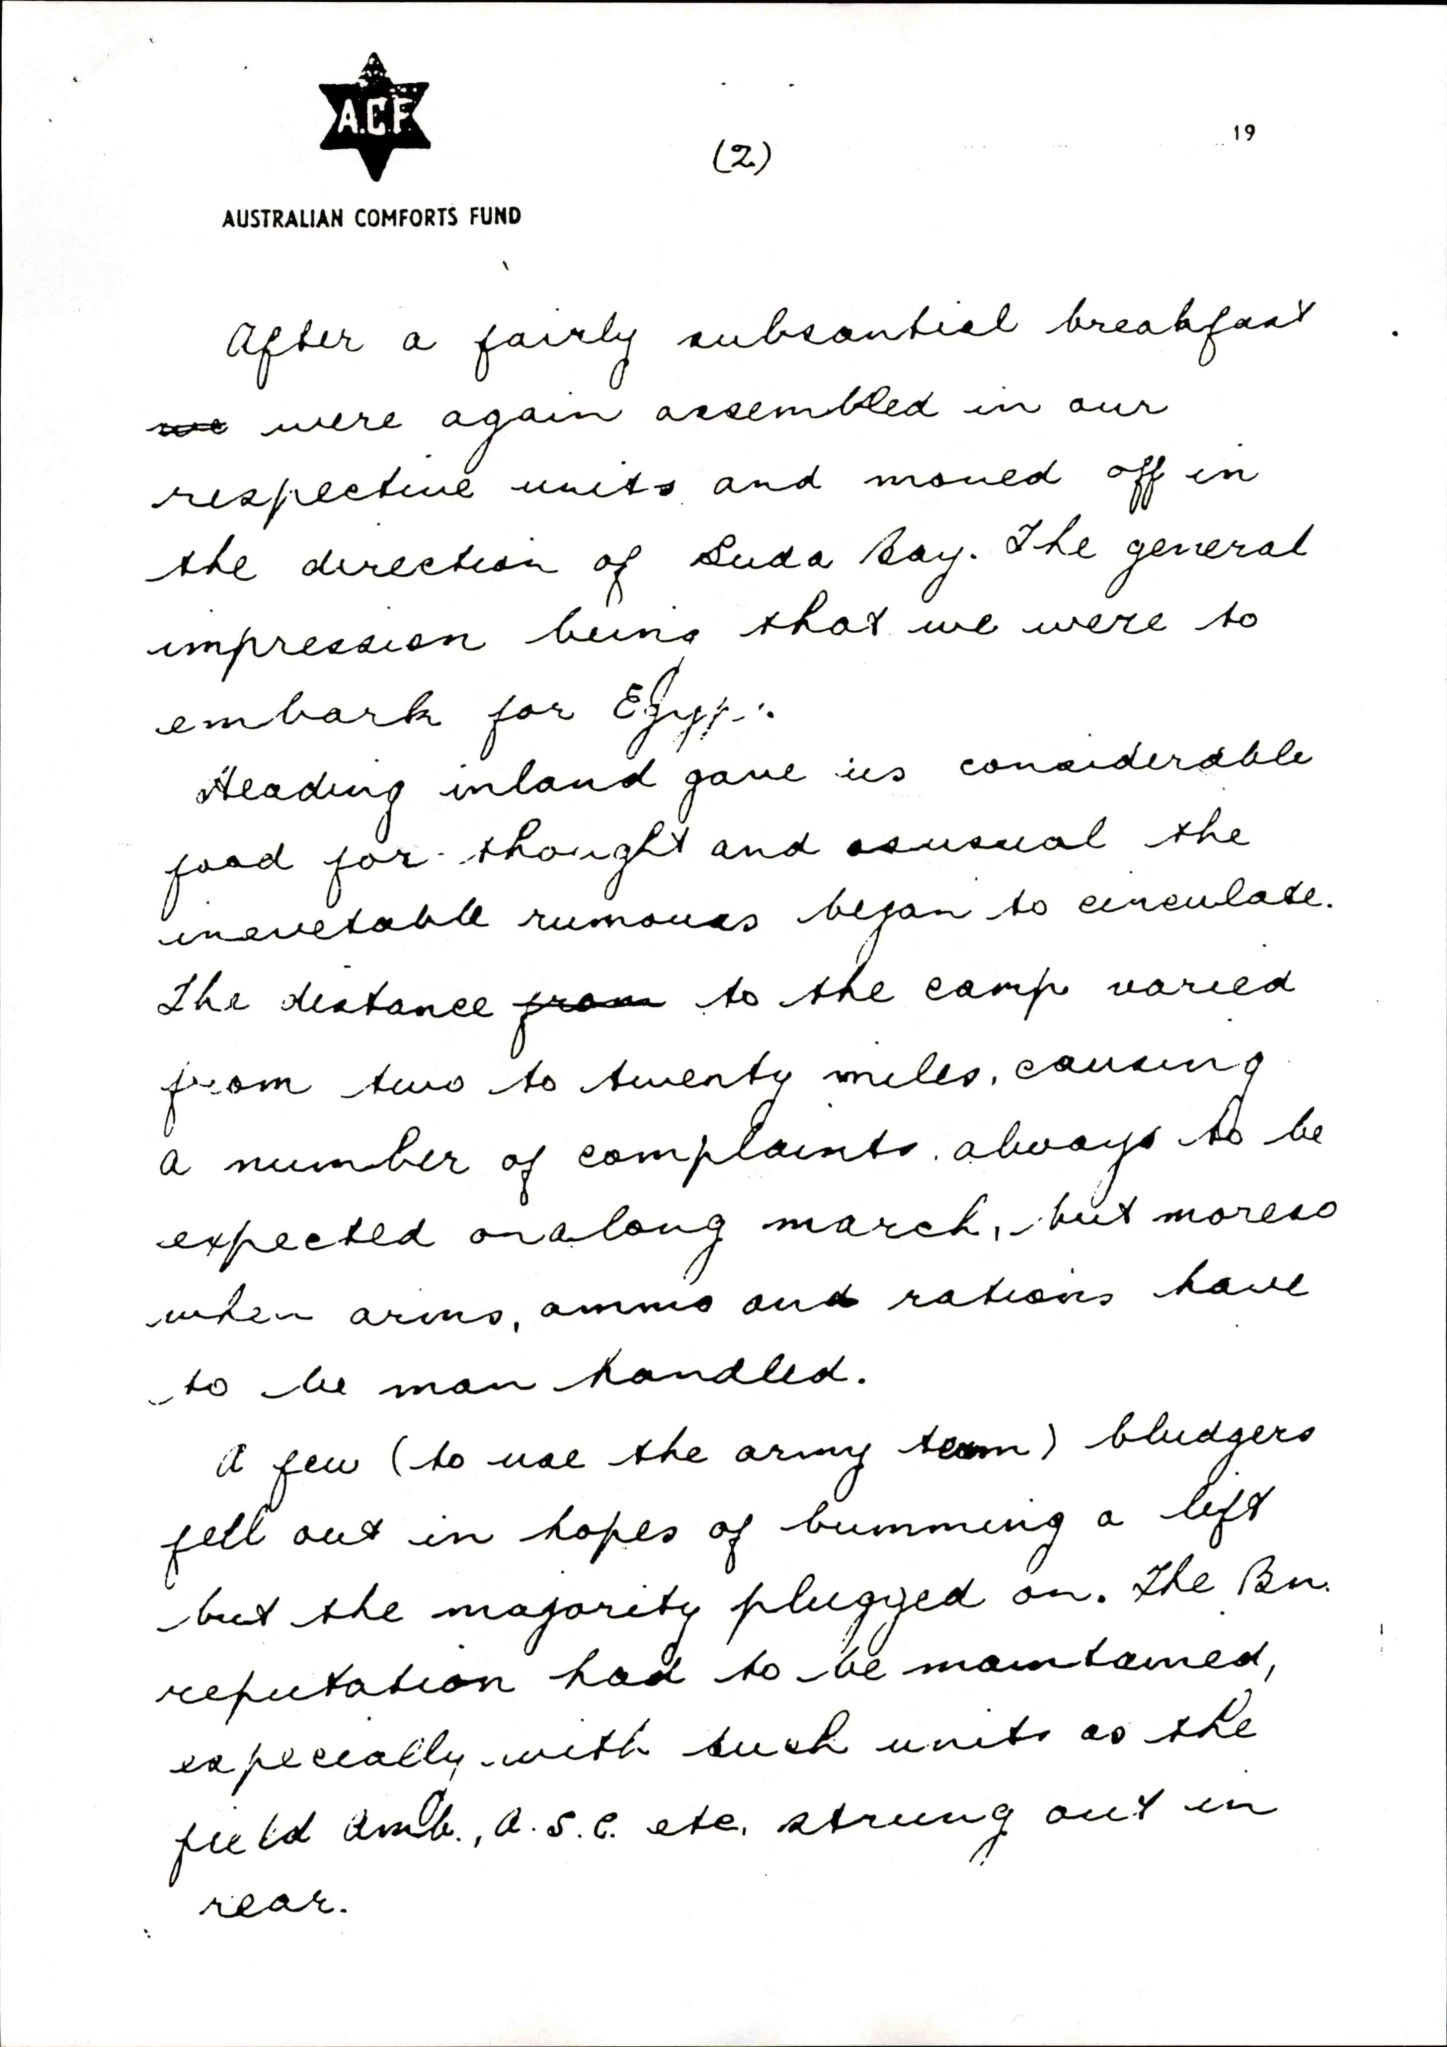 A.C.F.
(2)
19
AUSTRALIAN COMFORTS FUND
After a fairly subsantial breakfast
we were again assembled in our
respective units and moved off in
the direction of Suda Bay. The general
impression being that we were to
embark for Egypt.
Heading inland gave us considerable
food for thought and as usual the
inevetable rumours began to circulate.
The distance from to the camp varied
from two to twenty miles, causing
a number of complaints, always to be
expected on a long march, but moreso
when arms, ammo and rations have
to be man handled.
A few (to use the army term) bludgers
fell out in hopes of bumming a lift
but the majority plugged on. The Bn.
reputation had to be maintained,
especially with such units as the
field Amb., A.S.C. etc. strung out in
rear.